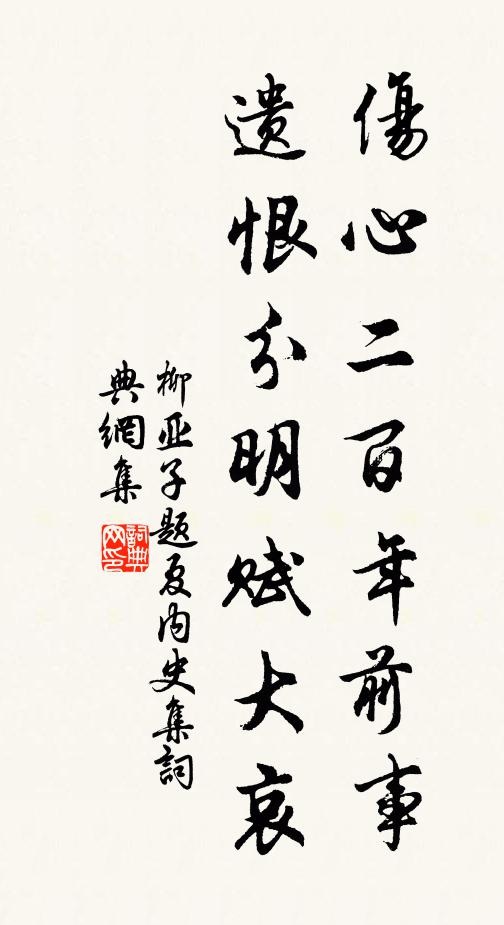 傷心二百年前事
遺恨分明賦大哀
柳亚子题夏内史集詞
典網集
詞典
网印